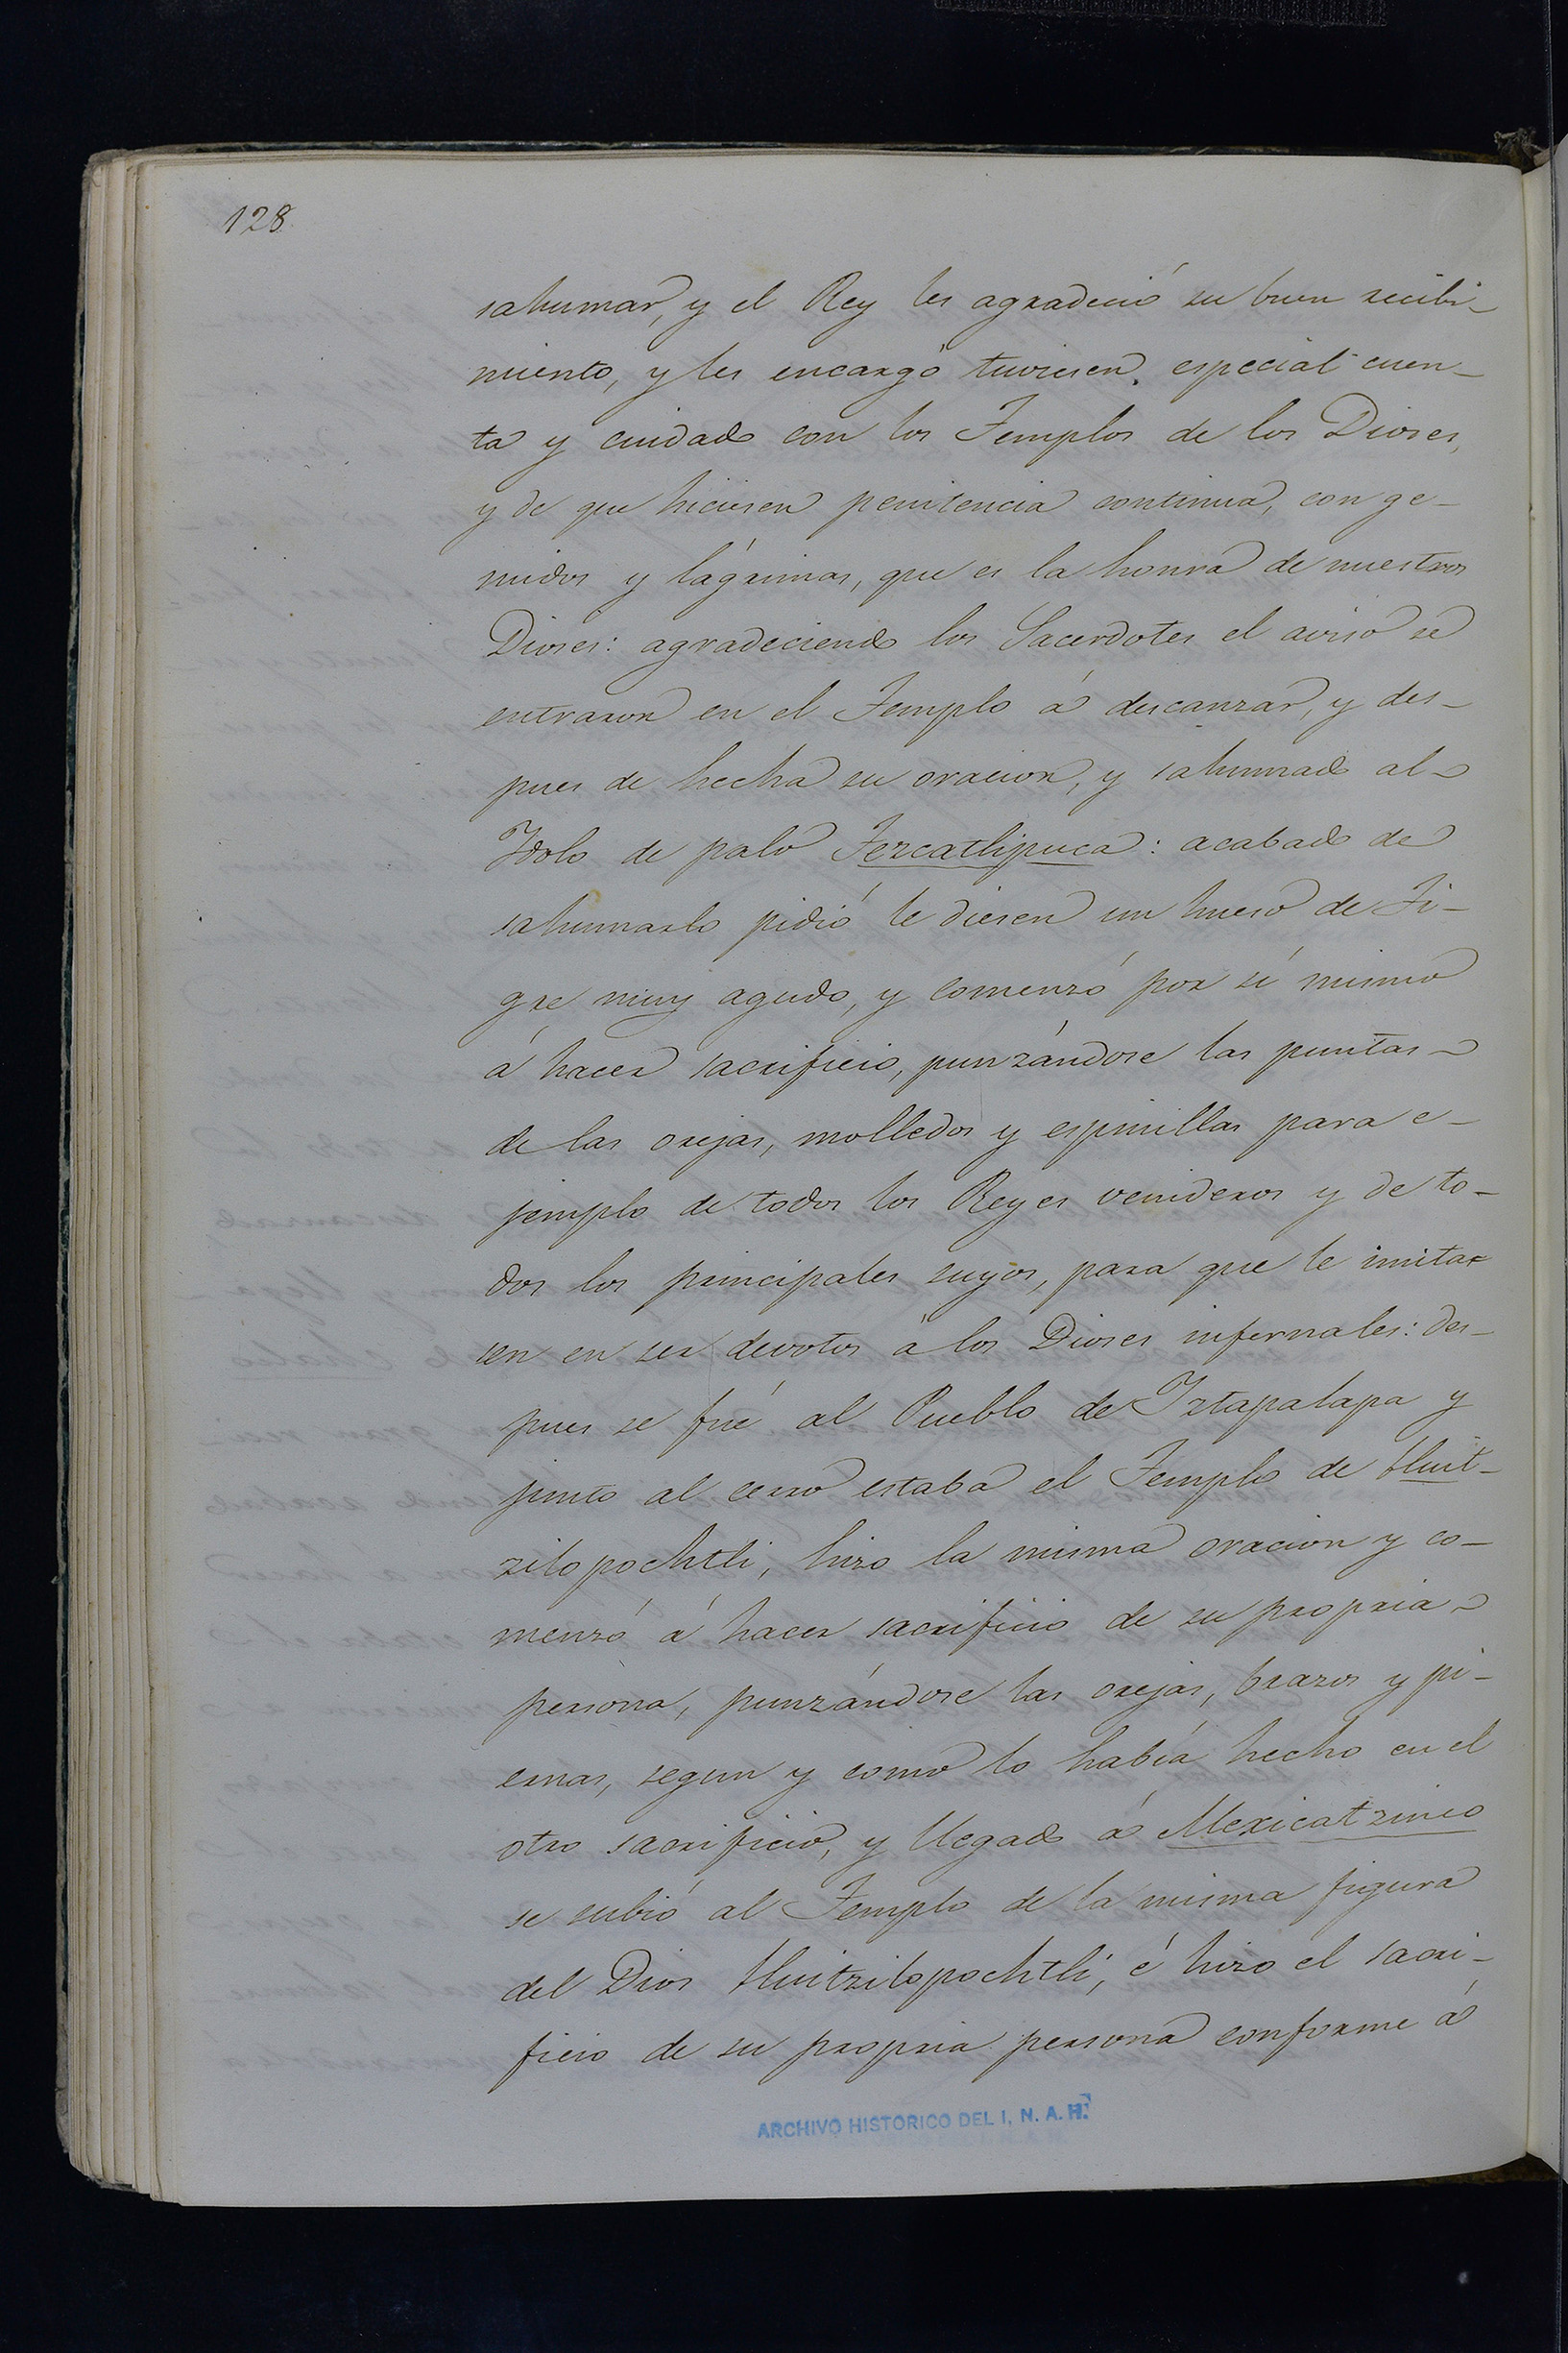 128
sahumar, y el Rey les agradeció su buen recibi-
miento, y les encargó tuviesen especial cuen-
ta y cuidado con los Templos de los Dioses,
y de que hiciesen penitencia continua, con ge-
midos y lágrimas, que es la honra de nuestros
Dioses: agradeciendo los Sacerdotes el aviso se
entraron en el Templo á descanzar, y des-
pues de hecha su oracion, y sahumado al
Idolo de palo Tezcatlipuca: acabado de
sahumarlo pidió le diesen un hueso de Ti-
gre muy agudo, y comenzó por sí mismo
á hacer sacrificio, punzándose las puntas
de las orejas, molledos y espinillas para e-
jemplo de todos los Reyes venideros y de to-
dos los principales suyos, para que le imita-
sen en ser devotos á los Dioses infernales: des-
pues se fué al Pueblo de Iztapalapa y
junto al cerro estaba el Templo de Huit-
zilopochtli, hizo la misma oracion y co-
menzó á hacer sacrificio de su propria
persona, punzándose las orejas, brazos y pi-
ernas, segun y como lo había hecho en el
otro sacrificio, y llegado á Mexicatzinco
se subió al Templo de la misma figura
del Dios Huitzilopochtli, é hizo el sacri-
ficio de su propria persona conforme á
ARCHIVO HISTORICO DEL I. N. A. H.